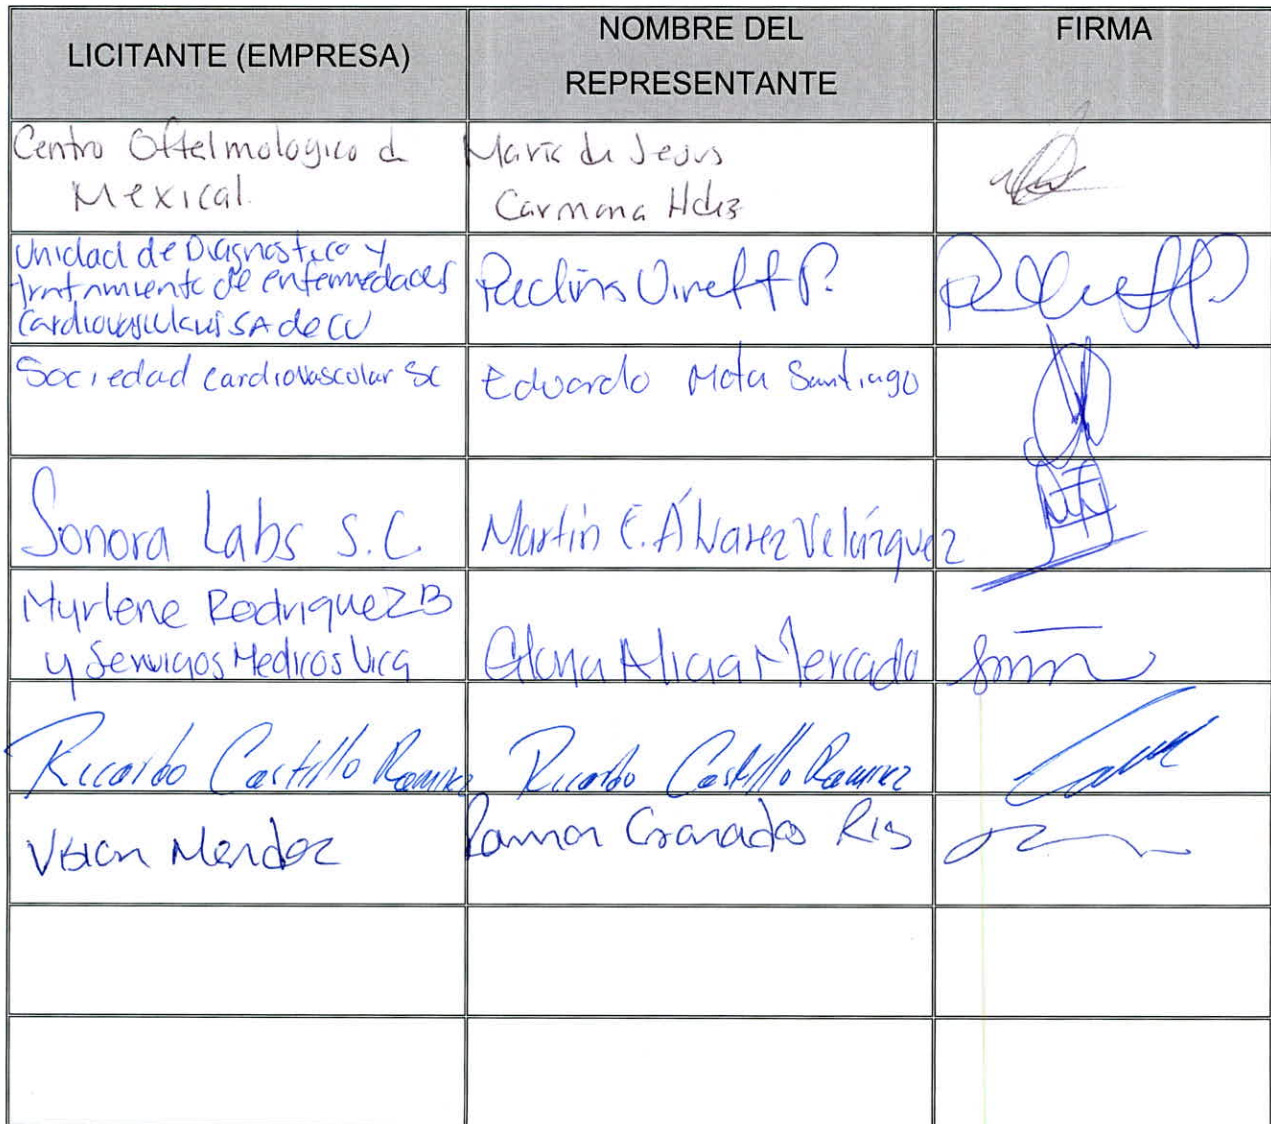 LICITANTE (EMPRESA)
NOMBRE DEL
REPRESENTANTE
FIRMA
Centro Oftelmologico d
Mexical.
Maria de Jesus
Carmona Hdez
Unidad de Diagnostico y
tratamiento de enfermedades
Cardiovasculares SA de CV
P.
Sociedad cardiovascular SC
Eduardo Mota Santiago
Sonora Labs S.C.
Martín E. Álvarez Velázquez
Myrlene Rodriguez B
y Servicios Medicos Vica
Gloria Alicia Mercado
Ricardo Castillo Ramirez
Ricardo Castillo Ramirez
Vision Mendez
Ramon Granados Ris